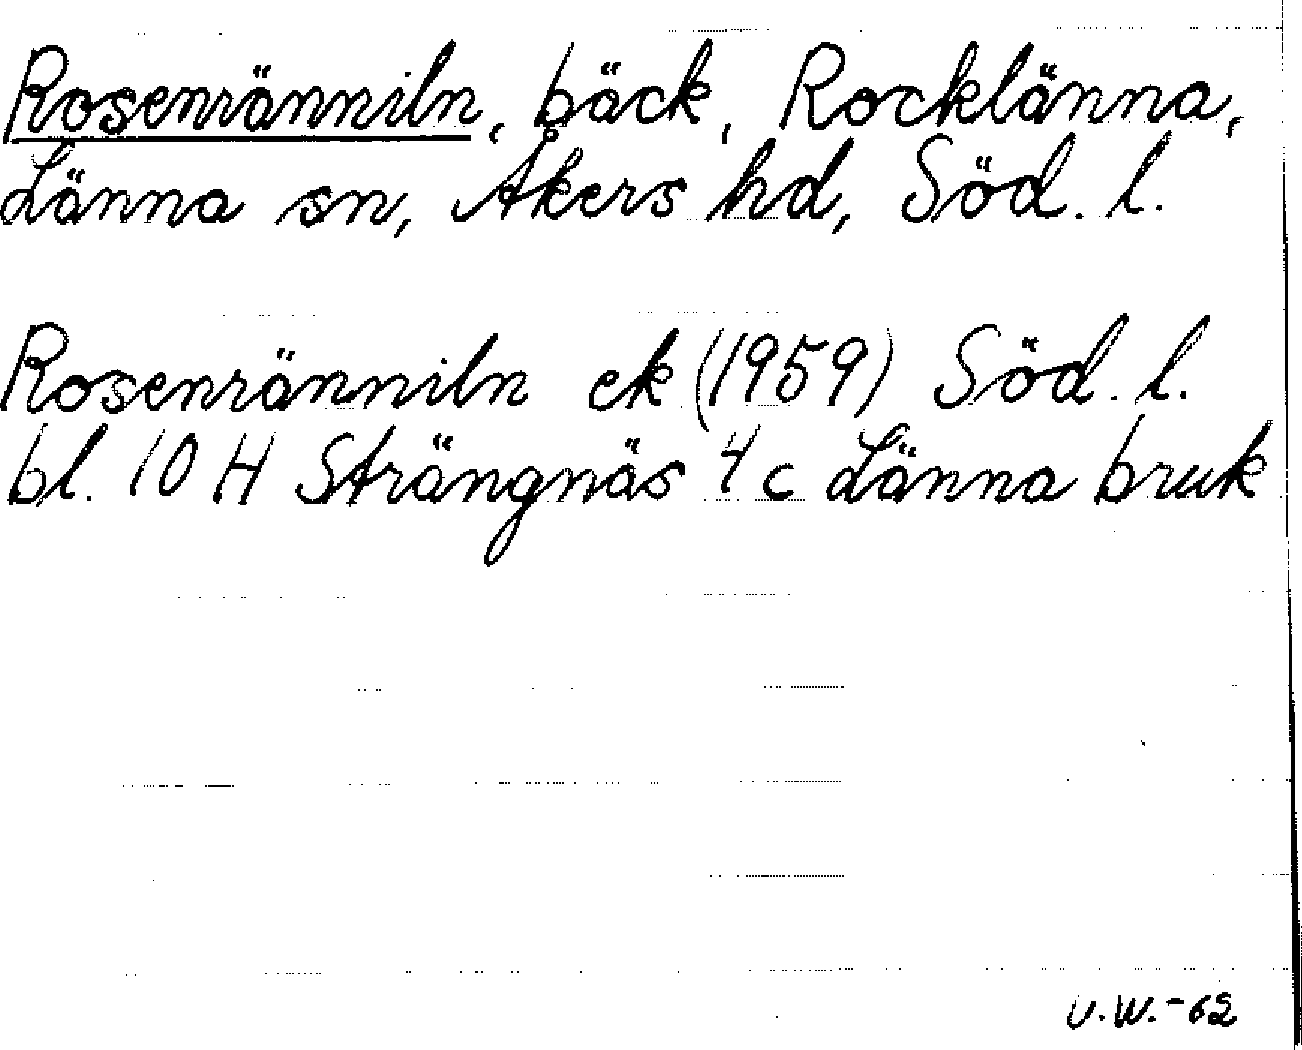 Rosenränniln, bäck, Rocklänna,
Länna sn, Åkers hd, Söd. l.
Rosenränniln ek (1959) Söd. l.
bl. 10 H Strängnäs 4 c Länna bruk
U.W.-62